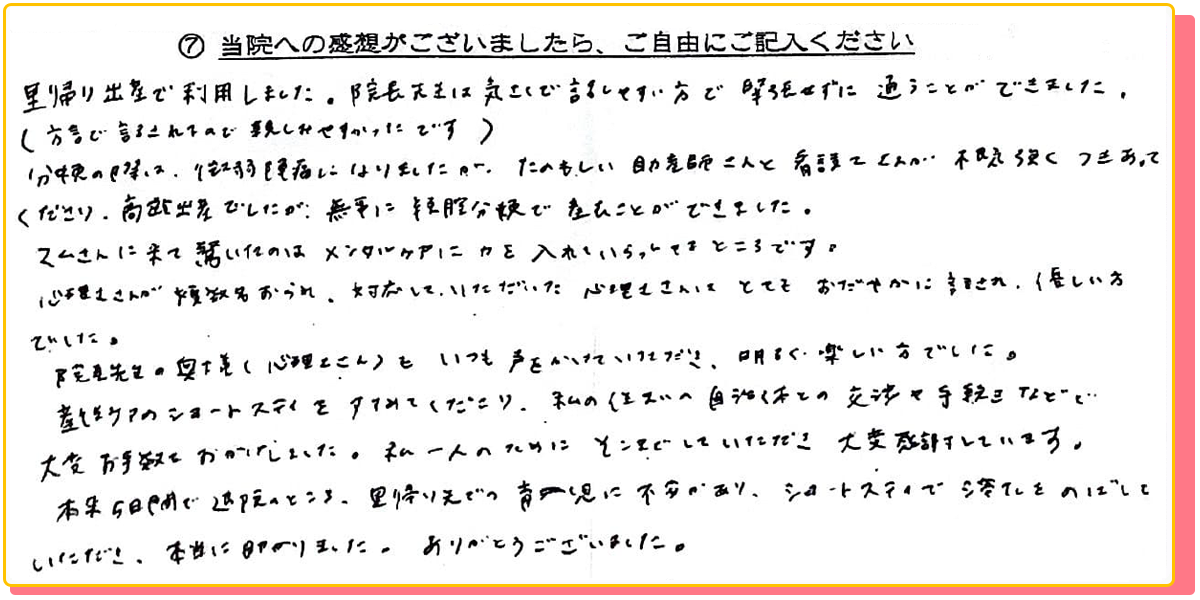 ⑦ 当院への感想がございましたら、ご自由にご記入ください
里帰り出産で利用しました。院長先生は気さくで話しやすい方で緊張せずに通うことができました。
(方言で話されるので親しみやすかったです)
分娩の際は、微弱陣痛になりましたが、たのもしい助産師さんと看護士さんが根気強くつきあって
くださり、高齢出産でしたが、無事に経腟分娩で産むことができました。
スムさんに来て驚いたのはメンタルケアに力を入れていらっしゃるところです。
心理士さんが複数名おられ、対応していただいた心理士さんはとてもおだやかに話され、優しい方
でした。
院長先生の奥様(心理士さん)もいつも声をかけていただき、明るく楽しい方でした。
産後ケアのショートステイをすすめてくださり、私の住む 自治体との交渉や手続きなどで
大変お手数をおかけしました。私一人のためにそこまでしていただき大変感謝しています。
本来5日間で退院のところ、里帰り先での育児に不安があり、ショートステイで滞在をのばして
いただき、本当に助かりました。ありがとうございました。